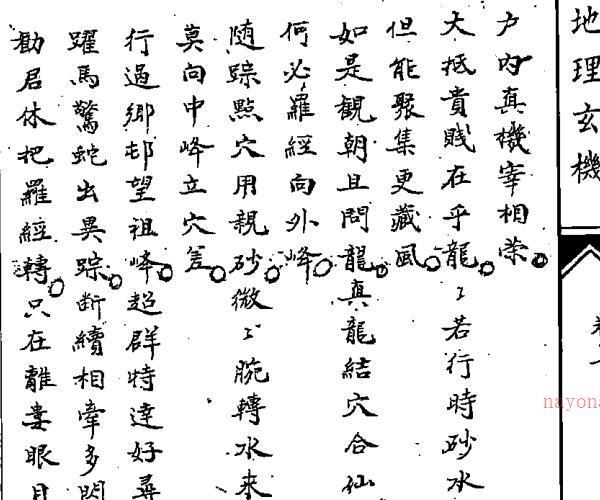 地理玄機
戶內真機宰相榮
大抵貴賤在乎龍〻若行時砂水
但能聚集更藏風
如是観朝且問龍真龍結穴合仙
何必羅經向外峰
随踪點穴用親砂微〻腕轉水来
莫向中峰立穴差
行過鄉邨望祖峰超群特達好尋
躍馬驚蛇出異踪断續相牽多閃
勸君休把羅經轉只在離婁眼目
nayona